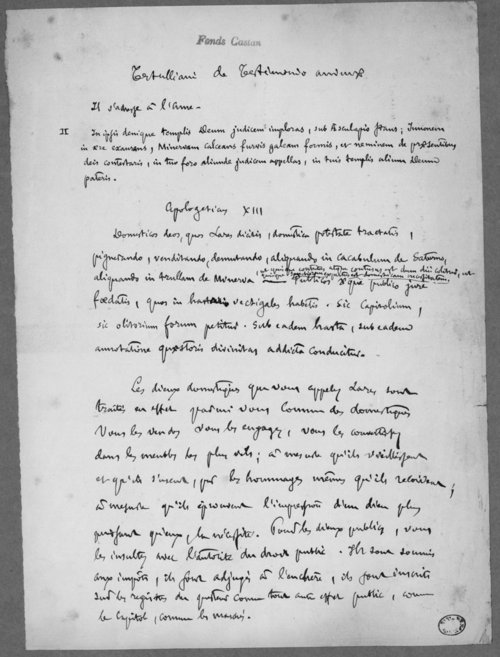 Fonds Castan
Tertulliani de Testimonio animæ
Il s'adresse à l'âme -
II In ipsis denique templis Deum judicem imploras, sub Æsculapio stans; Junonem
in ære exaurans, Minervam calceans furvis galeam formis, et neminem de præsentibus
deis contestaris, in tuo foro aliunde judicem appellas, in tuis templis alium Deum
pateris.
Apologeticus XIII
Domesticos deos, quos Lares dicitis, domestica potestate tractatis,
pignerando, venditando, demutando, aliquando in cacabulum de Saturno,
aliquando in trullam de Minerva, ut quisque contritus atque contusus est dum diu colitur, ut
Publicos æque publico jure
fœdatis, quos in vectigales habetis. Sic Capitolium,
sic olitorium forum petitur. Sub eadem hasta, sub eadem
annotatione quæstoris divinitas addicta conducitur.
Les dieux domestiques que vous appelez Lares sont
traités en effet parmi vous comme des domestiques
Vous les vendez vous les engagez, vous les convertissez
dans les meubles les plus vils; à mesure qu'ils vieillissent
et qu'ils s'usent, par les hommages mêmes qu'ils reçoivent;
à mesure qu'ils éprouvent l'impression d'un dieu plus
puissant qu'eux, la nécessité. Pour les dieux publics, vous
les insultez avec l'autorité du droit public. Ils sont soumis
aux impôts, ils sont adjugés à l'enchère, ils sont inscrits
sur les registres du questeur comme tout autre effet public, comme
le Capitole, comme les marchés.